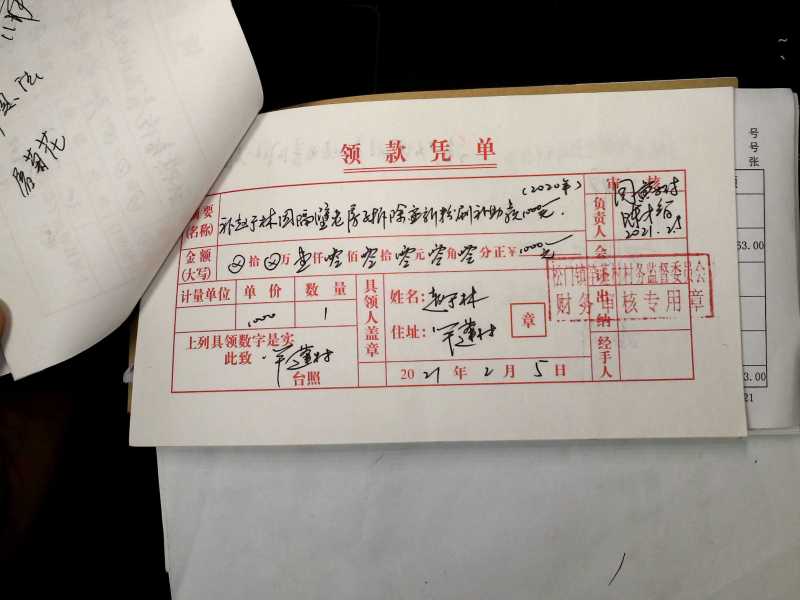 菊花
领款凭单
(2020年)
审核
摘要
(名称)
补赵于林因隔壁老房子拆除重新粉刷补助款1000元.
负责人
2021.2.5
金额
(大写)
⊗拾⊗万壹仟零佰零拾零元零角零分正¥1000元
会计
计量单位 单价 数量
1000 1
具领人盖章
姓名: 赵于林
住址:
章
出纳
村务监督委员会
财务审核专用章
上列具领数字是实
此致
台照
2021年2月5日
经手人
号
号
张
63.00
3.00
21